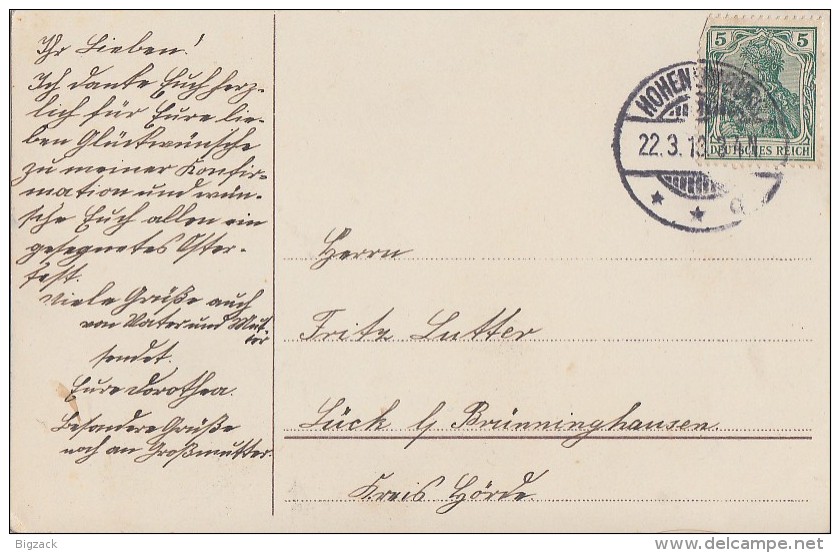 Ihr Lieben!
Ich danke Euch herz-
lich für Eure lie-
ben Glückwünsche
zu meiner Konfir-
mation und wün-
sche Euch allen ein
gesegnetes Oster-
fest.
Viele Grüße auch
von Vater und Mut-
ter
sendet
Eure Dorothea.
Besondere Grüße
noch an Großmutter.
5 5
DEUTSCHES REICH
HOHEN
22.3.13
* * a
Herrn
Fritz Lutter
Lück b/ Brünninghausen.
Kreis Hörde.
Bigzack
delcampe.net